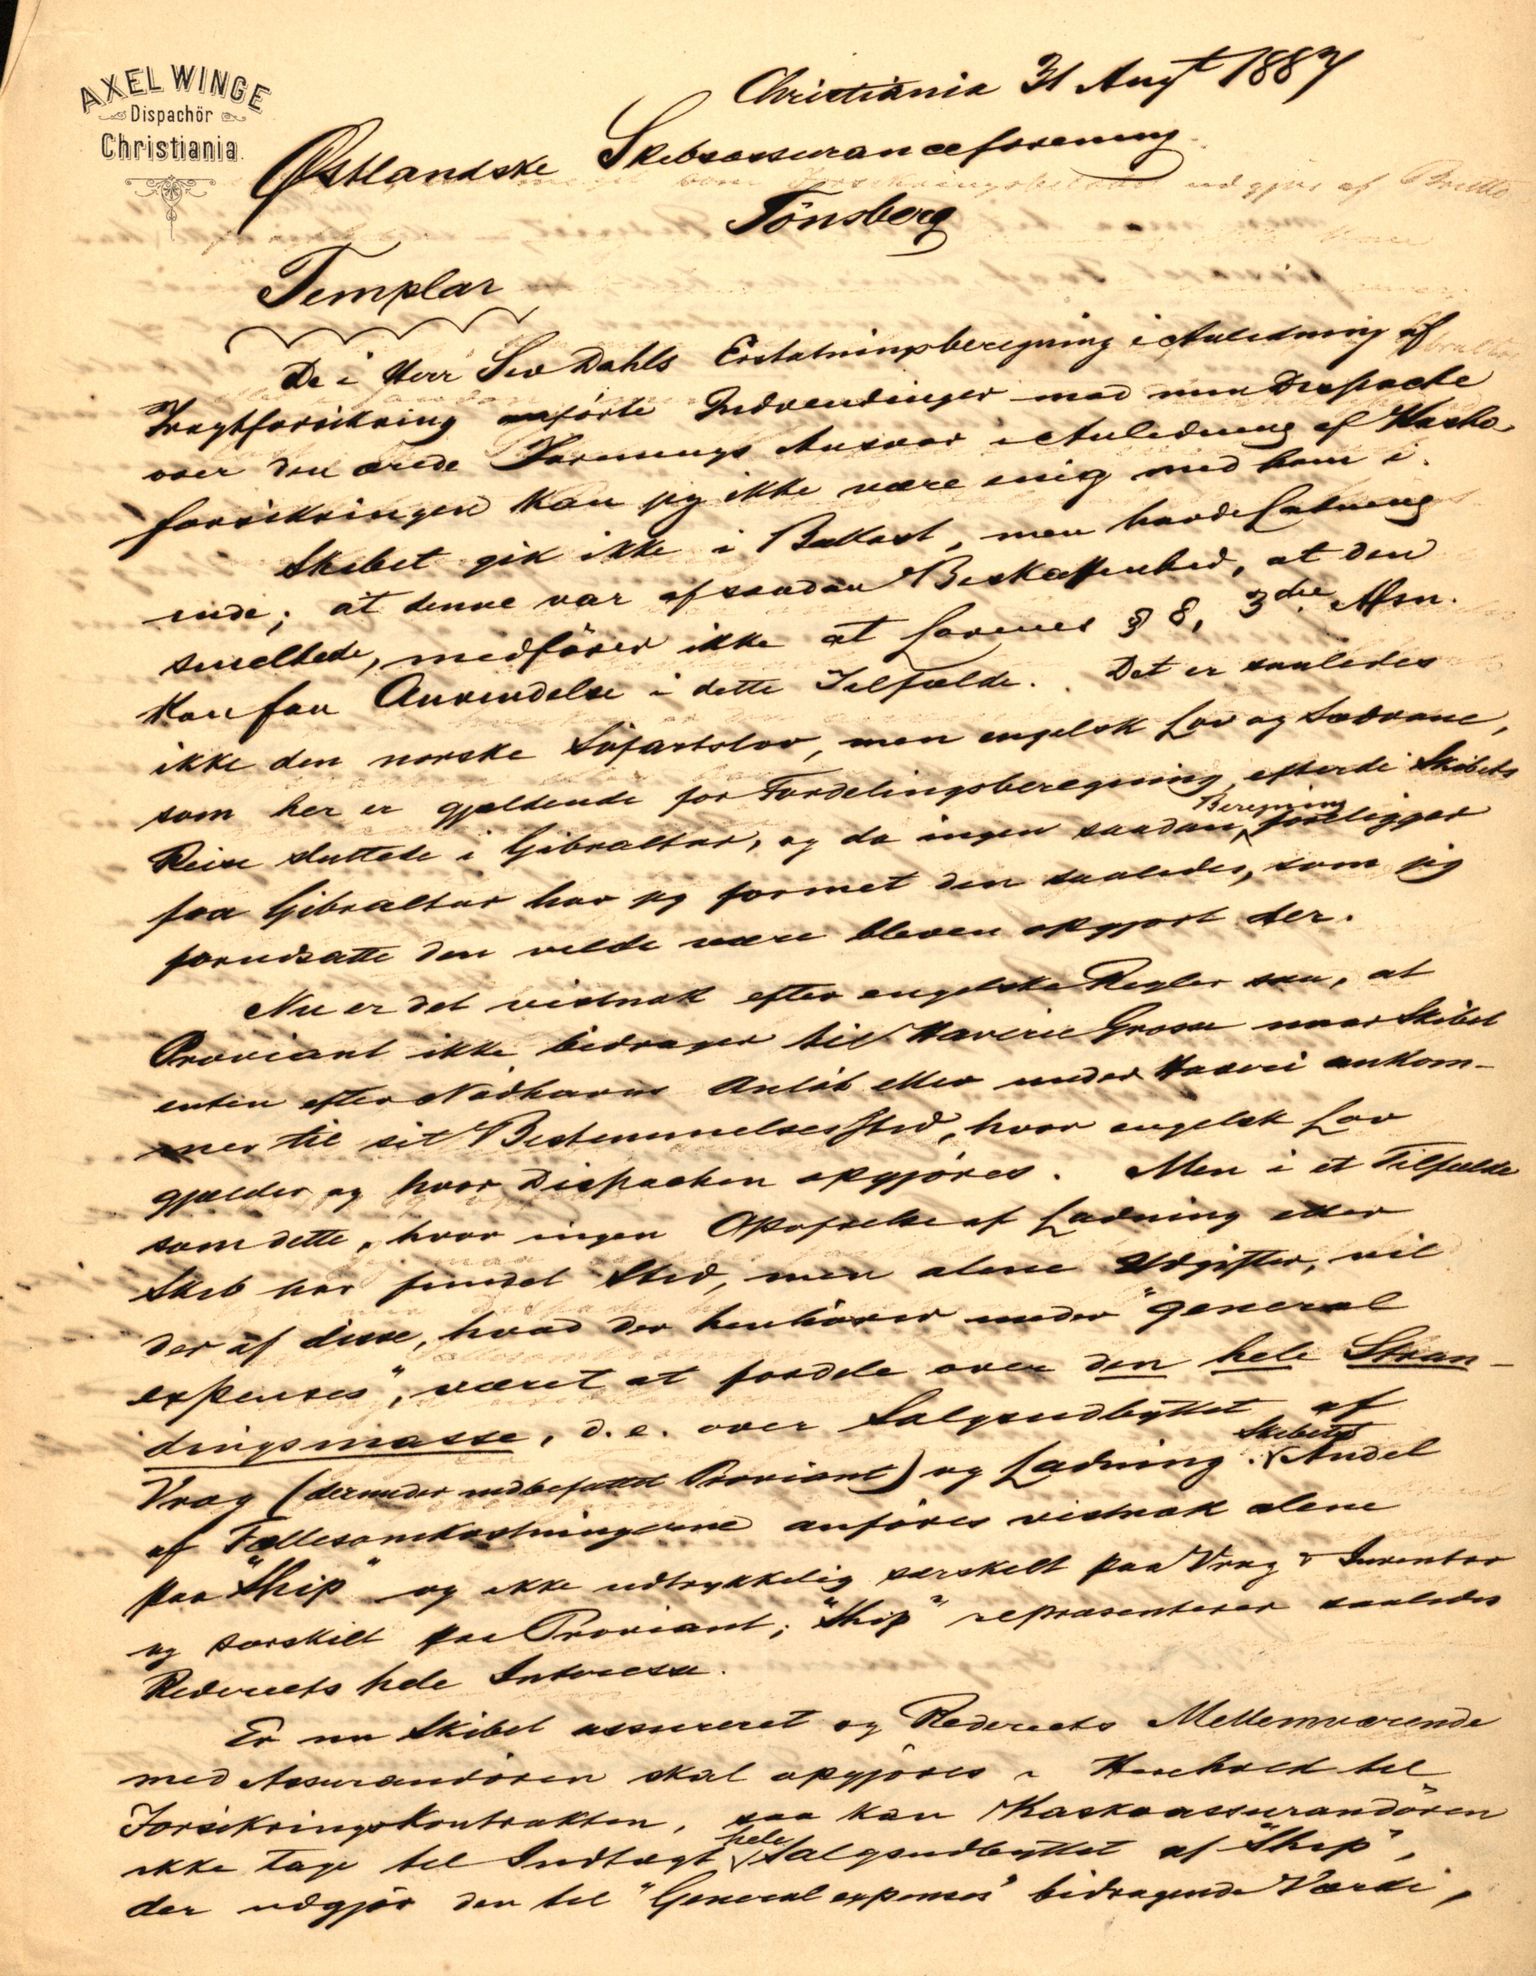 AXEL WINGE
Dispachör
Christiania
Christiania 31 Augt 1887
Østlandske Skibsassuranceforening
Tönsberg
Templar
De i Herr Siv Dahls Erstatningsberegning i Anledning af
Fragtforsikring anförte Indvendinger mod min Dispache
over den ærede Forenings Ansvar i Anledning af Kasko-
forsikringen kan jeg ikke være enig med ham i.
Skibet gik ikke i Ballast, men havde Ladning
inde; at denne var af saadan Beskaffenhed, at den
smeltede, medförer ikke at Lovens § 8, 3die Afsn.
kan faa Anvendelse i dette Tilfælde. Det er saaledes
ikke den norske Söfartslov, men engelsk Lov og Sædvane,
som her er gjældende for Fordelingsberegning, efterdi Skibets
Reise sluttede i Gibraltar, og da ingen saadan Beregning foreligger
fra Gibraltar har jeg formet den saaledes, som jeg
forudsatte den vilde være bleven opgjort der.
Nu er det vistnok efter engelske Regler saa, at
Proviant ikke bidrager til Haverie Grosse naar Skibet
enten efter Nödhavns Anlöb eller under Haveri ankom-
mer til sit Bestemmelsessted, hvor engelsk Lov
gjælder og hvor Dispachen opgjöres. Men i et Tilfælde
som dette, hvor ingen Opofrelse af Ladning eller
Skib har fundet Sted, men alene Udgifter, vil
der af disse, hvad der henhörer under "general
expenses", været at fordele over den hele Stran-
dingsmasse, d.e. over Salgsudbyttet af
Vrag (derunder indbefattet Proviant) og Ladning. Skibets Andel
af Fællesomkostningerne anföres vistnok alene
paa "Ship" og ikke udtrykkelig særskilt paa Vrag & Inventar
og særskilt paa Proviant; "Ship" repræsenterer saaledes
Rederiets hele Interesse.
Er nu Skibet assureret og Rederiets Mellemværende
med Assurandören skal opgjöres i Henhold til
Forsikringskontrakten, saa kan Kaskoassurandören
ikke tage til Indtægt hele Salgsudbyttet af "Ship",
der udgjör den til "General expenses" bidragende Værdi,